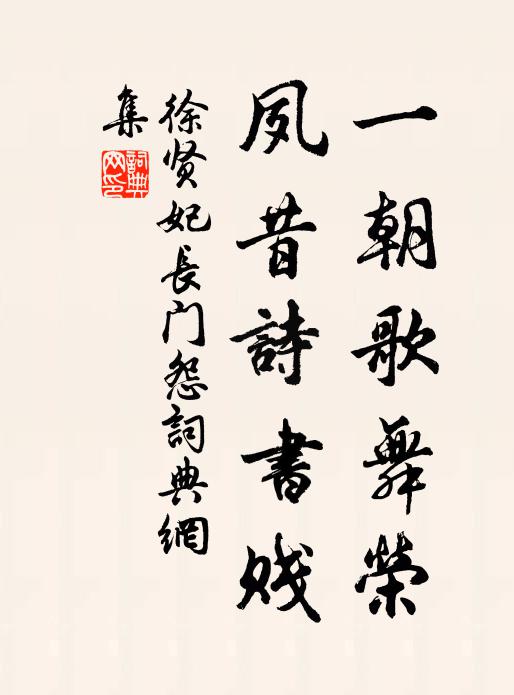 一朝歌舞榮
夙昔詩書贱
徐贤妃長门怨詞典網
集
詞典
网印